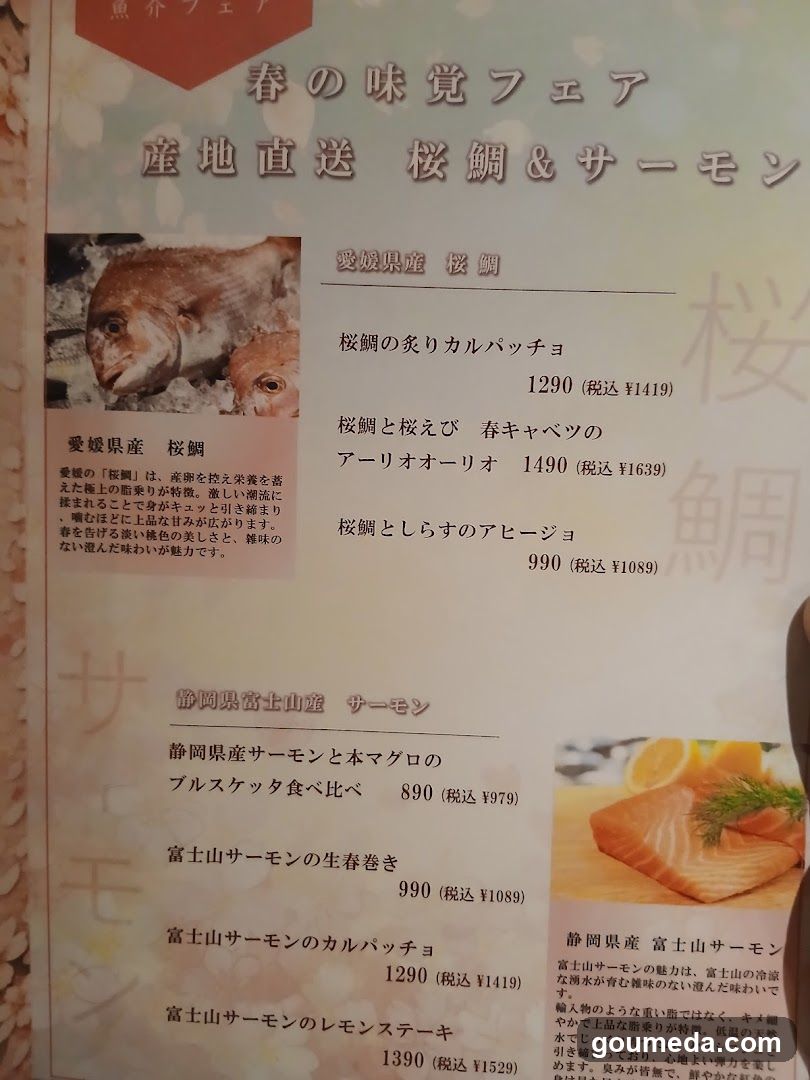 魚介フェア
春の味覚フェア
産地直送 桜鯛＆サーモン
愛媛県産 桜鯛
桜鯛の炙りカルパッチョ
1290 (税込 ¥1419)
桜鯛と桜えび 春キャベツの
アーリオオーリオ 1490 (税込 ¥1639)
桜鯛としらすのアヒージョ
990 (税込 ¥1089)
桜鯛
愛媛県産 桜鯛
愛媛の「桜鯛」は、産卵を控え栄養を蓄
えた極上の脂乗りが特徴。激しい潮流に
揉まれることで身がキュッと引き締まり
、噛むほどに上品な甘みが広がります。
春を告げる淡い桃色の美しさと、雑味の
ない澄んだ味わいが魅力です。
サーモン
静岡県富士山産 サーモン
静岡県産サーモンと本マグロの
ブルスケッタ食べ比べ 890 (税込 ¥979)
富士山サーモンの生春巻き
990 (税込 ¥1089)
富士山サーモンのカルパッチョ
1290 (税込 ¥1419)
富士山サーモンのレモンステーキ
1390 (税込 ¥1529)
静岡県産 富士山サーモン
富士山サーモンの魅力は、富士山の冷涼
な湧水が育む雑味のない澄んだ味わいで
す。
輸入物のような重い脂ではなく、キメ細
やかで上品な脂乗りが特徴。低温の天然
水でじ
引き締まっており、心地よい弾力を楽し
めます。臭みが皆無で、鮮やかな紅色の
goumeda.com